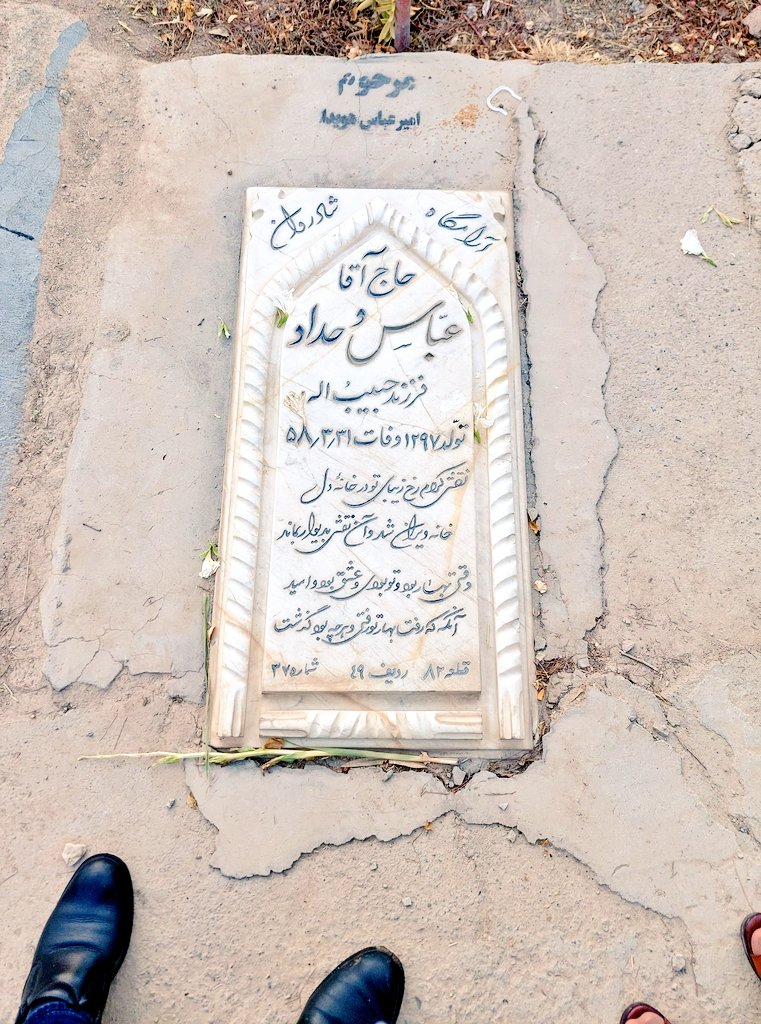 مرحوم
امیرعباس هویدا
آرامگاه شادروان
حاج آقا
عبّاس حداد
فرزند حبیبُ اله
تولّد ۱۲۹۷ وفات ۵۸٫۳٫۳۱
نقش کردم رخ زیبای تو در خانهٔ دل
خانه ویران شد و آن نقش بدیوار بماند
وقتی بهار بود و تو بودی و عشق بود و امید
آنگه که رفت بهار تو رفتی و هرچه بود گذشت
قطعه ۸۲ ردیف ۴۹ شماره ۳۷